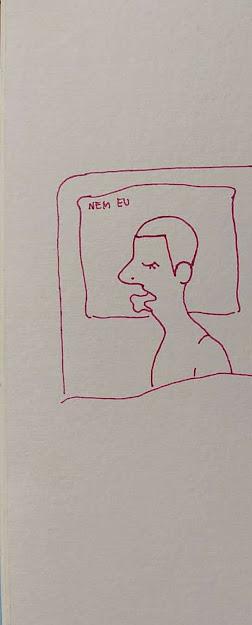 NEM EU